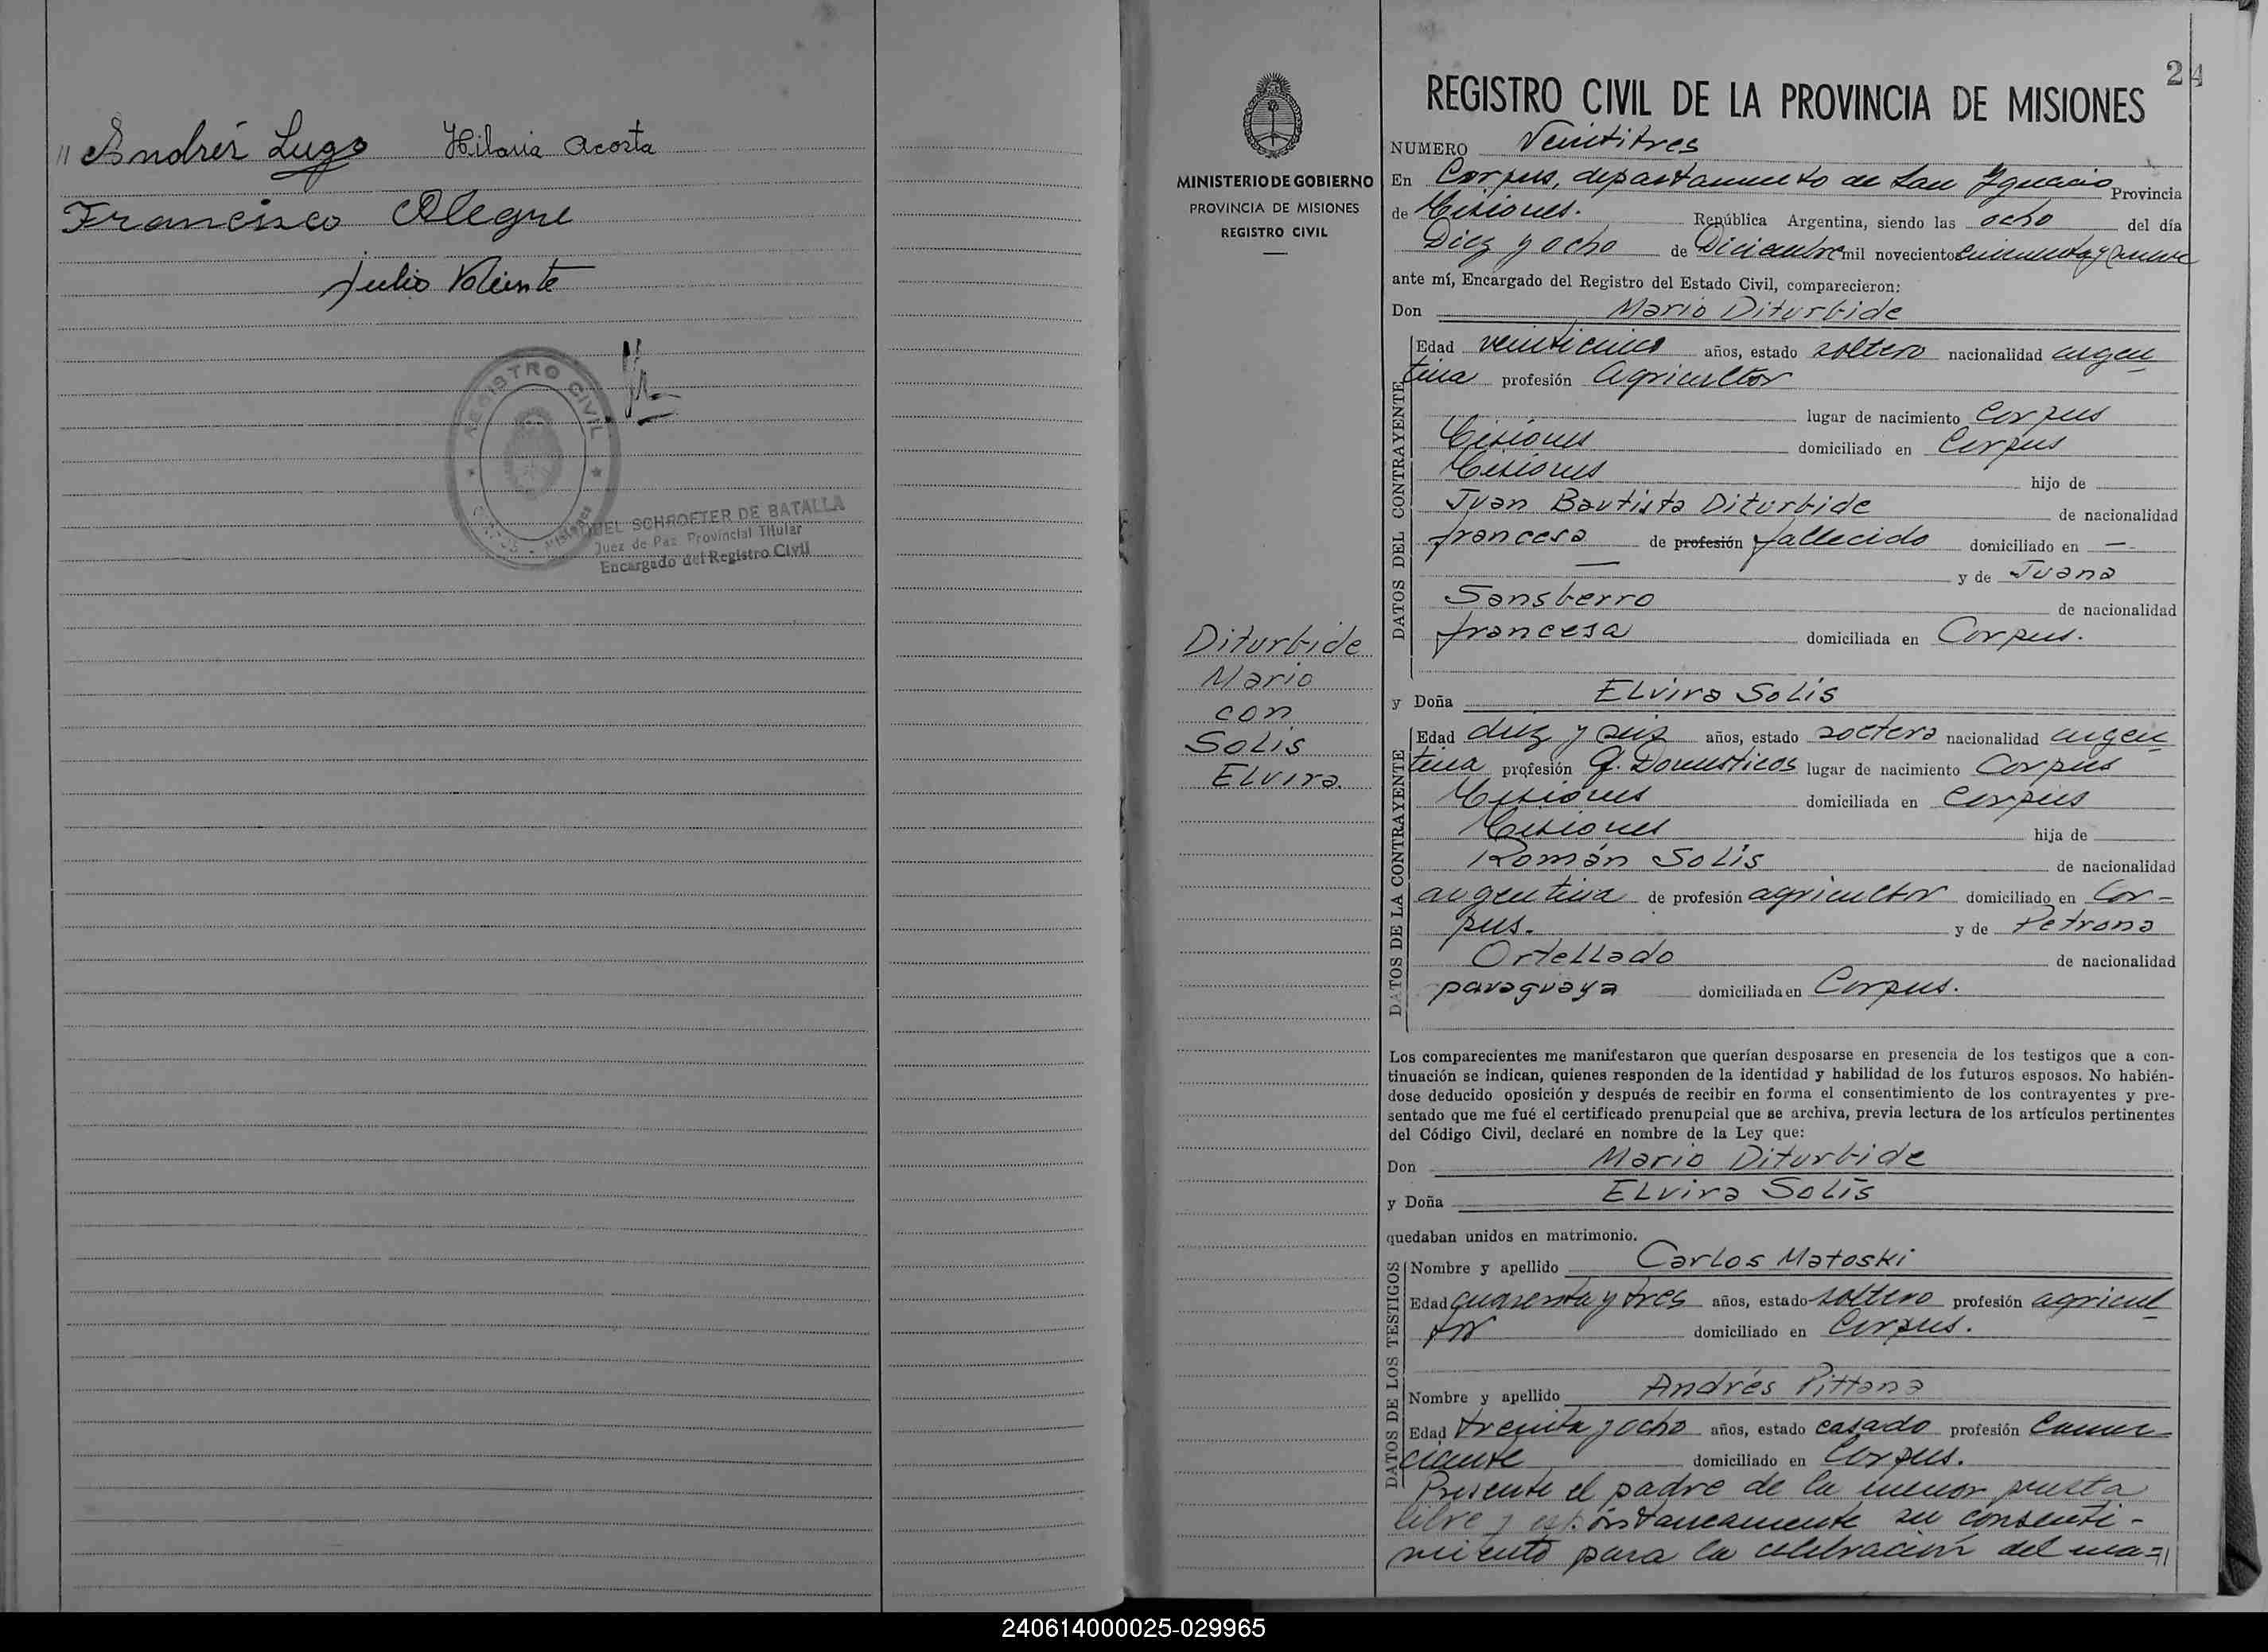 " Andrés Lugo Hilaria Acosta
Francisco Alegre
Julio
REGISTRO CIVIL
CORPUS - Misiones
SCHROETER DE BATALLA
Juez de Paz Provincial Titular
Encargado del Registro Civil
MINISTERIO DE GOBIERNO
PROVINCIA DE MISIONES
REGISTRO CIVIL
Diturbide
Mario
con
Solis
Elvira.
24
REGISTRO CIVIL DE LA PROVINCIA DE MISIONES
NUMERO Veintitres
En Corpus, departamento de San Ygnacio Provincia
de Misiones. República Argentina, siendo las ocho del día
Diez y ocho de Diciembre mil novecientos cincuenta y nueve
ante mí, Encargado del Registro del Estado Civil, comparecieron:
Don Mario Diturbide
DATOS DEL CONTRAYENTE
Edad veinticinco años, estado soltero nacionalidad argen
tina profesión Agricultor
lugar de nacimiento Corpus
Misiones domiciliado en Corpus
Misiones hijo de
Juan Bautista Diturbide de nacionalidad
francesa de profesión fallecido domiciliado en —
— y de Juana
Sansberro de nacionalidad
francesa domiciliada en Corpus.
y Doña Elvira Solis
DATOS DE LA CONTRAYENTE
Edad diez y seis años, estado soltera nacionalidad argen
tina profesión Q. Domesticos lugar de nacimiento Corpus
Misiones domiciliada en Corpus
Misiones hija de
Román Solis de nacionalidad
argentina de profesión agricultor domiciliado en Cor-
pus. y de Petrona
Ortellado de nacionalidad
paraguaya domiciliada en Corpus.
Los comparecientes me manifestaron que querían desposarse en presencia de los testigos que a con-
tinuación se indican, quienes responden de la identidad y habilidad de los futuros esposos. No habién-
dose deducido oposición y después de recibir en forma el consentimiento de los contrayentes y pre-
sentado que me fué el certificado prenupcial que se archiva, previa lectura de los artículos pertinentes
del Código Civil, declaré en nombre de la Ley que:
Don Mario Diturbide
y Doña Elvira Solís
quedaban unidos en matrimonio.
DATOS DE LOS TESTIGOS
Nombre y apellido Carlos Matoski
Edad cuarenta y tres años, estado soltero profesión agricul
tor domiciliado en Corpus.
Nombre y apellido Andrés Pittana
Edad treinta y ocho años, estado casado profesión Comer-
ciante domiciliado en Corpus.
Presente el padre de la menor presta
libre y espontaneamente su consenti-
miento para la celebración del ma=//
240614000025-029965